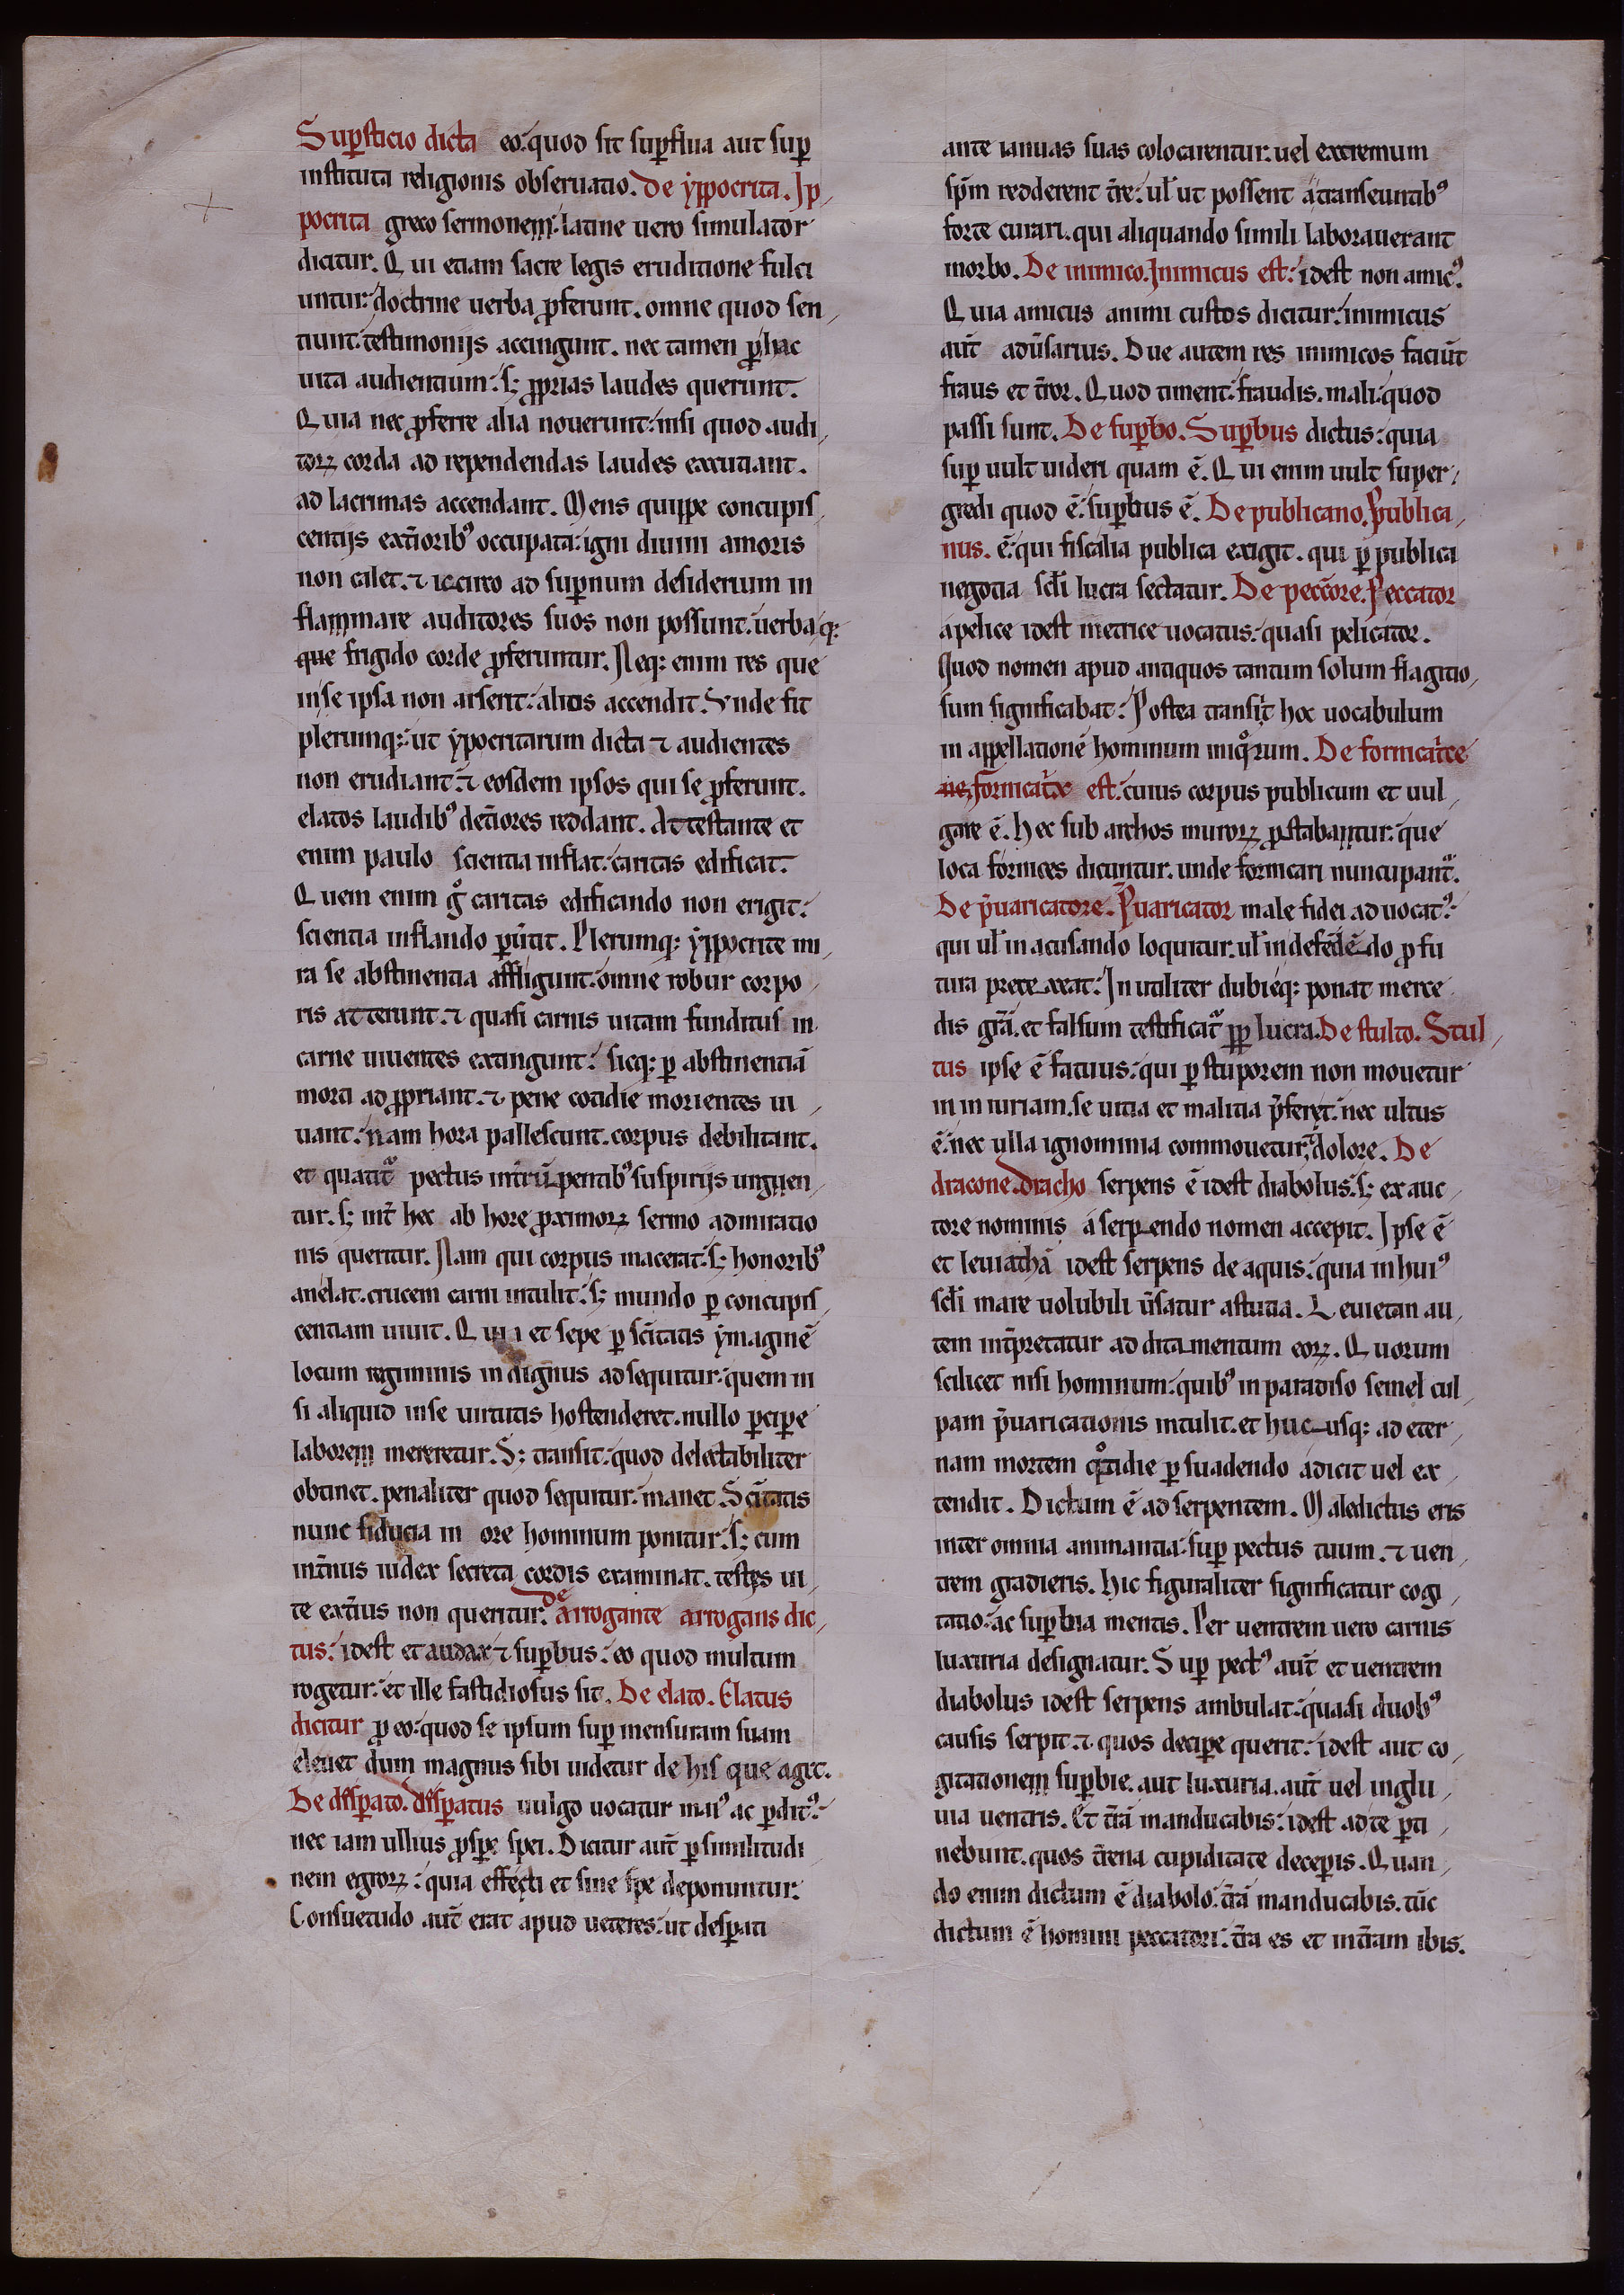 Sup̲sticio dicta eo: quod sit sup̲flua aut sup̲
instituta religionis obseruatio. De ẏppocrita. Ip
pocrita greco sermonem: latine uero simulator
dicitur. Qui etiam sacre legis eruditione fulci
untur: doctrine uerba ꝓferunt. omne quod sen
tiunt: testimoniis accingunt. nec tamen ꝑ hac
uita audientium: sꝫ ꝓprias laudes querunt.
Quia nec ꝓferre alia nouerunt: nisi quod audi
toꝝ corda ad rependendas laudes excutiant.
ad lacrimas accendant. Mens quippe concupis
centiis ext̄iorib⁹ occupata: igni diuini amoris
non calet. ⁊ iccirco ad sup̲num desiderium in
flammare auditores suos non possunt. uerba qꝫ
que frigido corde ꝓferuntur. Neqꝫ enim res que
in se ipsa non arserit: alios accendit. Vnde fit
plerumqꝫ: ut ẏpocritarum dicta ⁊ audientes
non erudiant: ⁊ eosdem ipsos qui se ꝓferunt.
elatos laudib⁹ det̄iores reddant. Attestante et
enim paulo scientia inflat: caritas edificat.
Quem enim gͦ caritas edificando non erigit:
scientia inflando ꝑūtit. Plerumqꝫ ẏppocrite mi
ra se abstinentia affligunt: omne robur corpo
ris atterunt. ⁊ quasi carnis uitam funditus in
carne uiuentes extingunt: sicqꝫ ꝑ abstinentiā
morti adꝓpriant. ⁊ pene cotidie morientes ui
uant: nam hora pallescunt. corpus debilitant.
et quatit᷑ pectus int̄rūpentib⁹ suspiriis ungueɴ
tur. sꝫ int̄ hec ab hore ꝓximoꝝ sermo admiratio
nis queritur. Nam qui corpus macerat: sꝫ honorib⁹
anelat. crucem carni intulit: sꝫ mundo ꝑ concupis
centiam uiuit. Qui et sepe ꝑ sc̄itatis ẏmaginē
locum regiminis indignus adsequitur: quem in
si aliquid in se uirtutis hostenderet. nullo ꝑcipe
laborem mereretur. Sꝫ transit: quod delectabiliter
obtinet. penaliter quod sequitur: manet. Sc̄itatis
nunc fiducia in ore hominum ponitur: sꝫ cum
int̄nus iudex secreta cordis examinat. testes ui
te ext̄ius non queritur. De arrogante arrogans dic
tus: idest et audax ⁊ sup̲bus: eo quod multum
rogetur: et ille fastidiosus sit. De elato. Elatus
dicitur ꝓ eo: quod se ipsum sup̲ mensuram suam
eleuet dum magnus sibi uidetur de his que agit.
De desꝑato. desꝑatus uulgo uocatur mal⁹ ac ꝑdit⁹:
nec iam ullius ꝓspe spei. Dicitur aut̄ ꝑ similitudi
nem egroꝝ: quia effecti et sine spe deponuntur:
Consuetudo aut̄ erat apud ueteres: ut desꝑati
ante ianuas suas colocarentur: uel extremum
spm̄ redderent t̄re: ul̄ ut possent a transeuntib⁹
forte curari. qui aliquando simili laborauerant
morbo. De inimico. Inimicus est: idest non amic⁹.
Quia amicus animi custos dicitur: inimicus
aut̄ adūsarius. Due autem res inimicos faciūt
fraus et t̄ror. Quod timent: fraudis. mali: quod
passi sunt. De sup̲bo. Sup̲bus dictus: quia
sup̲ uult uideri quam ē. Qui enim uult super
gredi quod ē: sup̲bus ē. De publicano. Publica
nus. ē: qui fiscalia publica exigit. qui ꝑ publica
negotia scl̄i lucra sectatur. De peccōre. Peccator
a pelice idest metrice uocatus: quasi pelicator.
Quod nomen apud antiquos tantum solum flagitio
sum significabat: Postea transiīt hoc uocabulum
in appellationē hominum iniqͦrum. De fornicat͛ce
fornicat͛x est: cuius corpus publicum et uul
gare ē. Hec sub archos muroꝝ ꝓstabantur: que
loca fornices dicuntur. unde fornicari nuncupant᷑.
De p̄uaricatore. P̄uaricator male fidei aduocat⁹:
qui ul̄ in acusando loquitur. ul̄ in defēdēdo ꝓ fu
tura pretexeat: Inutiliter dubieqꝫ ponat merce
dis grā. et falsum testificat᷑ ꝓp lucra. De stulto. Stul
tus ipse ē fatuus: qui ꝑ stuporem non mouetur
in iniuriam. se uitia et malitia p̄feret. nec ultus
ē: nec ulla ignominia commouetur dolore. De
dracone. dracho serpens ē idest diabolus: sꝫ ex auc
tore nominis a serpendo nomen accepit. Ipse ē
et leuiathā idest serpens de aquis: quia in hui⁹
scl̄i mare uolubili ūsatur astutia. Leuietan au
tem int̄pretatur additamentum eoꝝ. Quorum
scilicet nisi hominum: quib⁹ in paradiso semel cul
pam p̄uaricationis intulit. et huc usqꝫ ad eter
nam mortem qͦtidie ꝑ suadendo adicit uel ex
tendit. Dictum ē ad serpentem. Maledictus eris
inter omnia animantia: sup̲ pectus tuum. ⁊ uen
trem gradieris. Hic figuraliter significatur cogi
tatio: ac sup̲bia mentis. Per uentrem uero carnis
luxuria designatur. Sup̲ pect⁹ aut̄ et uentrem
diabolus idest serpens ambulat: quasi duob⁹
causis serpit. ⁊ quos decipe querit: idest aut co
gitationem sup̲bie. aut luxuria. aut̄ uel inglu
uia uentris. Et t̄rā manducabis: idest ad te ꝑti
nebunt. quos t̄rena cupiditate deceperis. Quan
do enim dictum ē diabolo: t̄rā manducabis. tūc
dictum ē homini peccatori: t̄ra es et in t̄ram ibis.